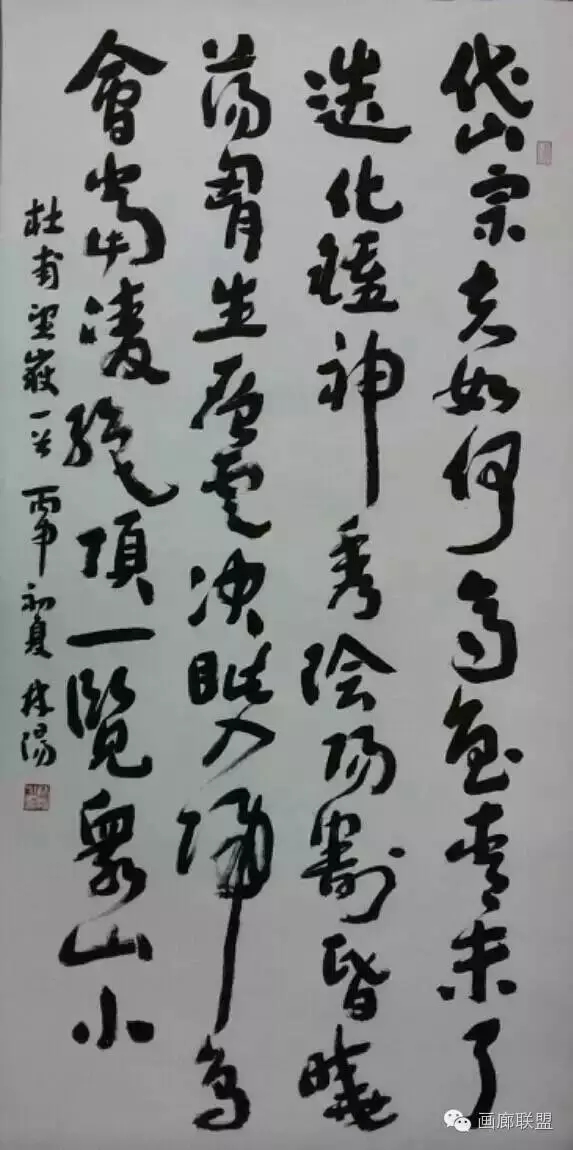 岱宗夫如何齊魯青未了
造化鍾神秀陰陽割昏曉
蕩胷生層雲決眥入歸鳥
會當凌絕頂一覽眾山小
杜甫望嶽一首 丙申初夏 林陽
画廊联盟